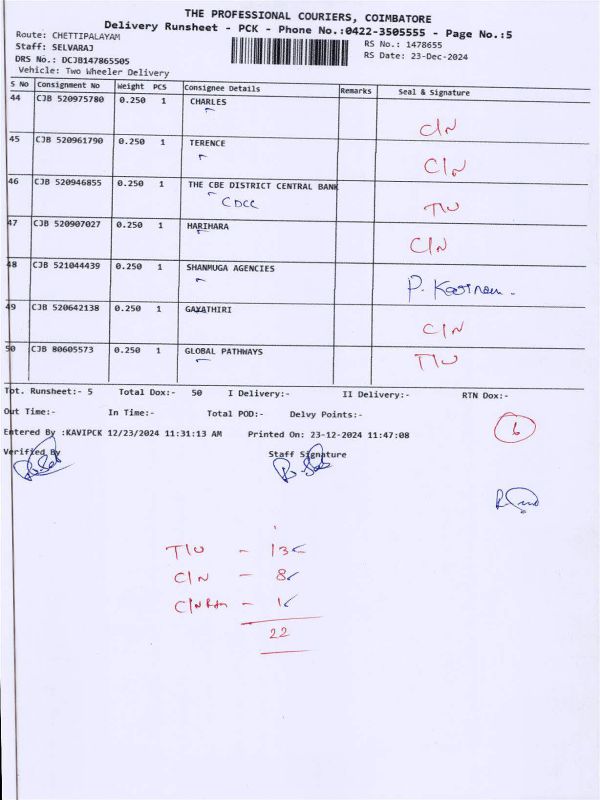 THE PROFESSIONAL COURIERS, COIMBATORE
Delivery Runsheet - PCK - Phone No.:0422-3505555 - Page No.:5
Route: CHETTIPALAYAM
RS No.: 1478655
Staff: SELVARAJ
RS Date: 23-Dec-2024
DRS No.: DCJB147865505
Vehicle: Two Wheeler Delivery
S No Consignment No Weight PCS Consignee Details Remarks Seal & Signature
44 CJB 520975780 0.250 1 CHARLES
C/N
45 CJB 520961790 0.250 1 TERENCE
C/N
46 CJB 520946855 0.250 1 THE CBE DISTRICT CENTRAL BANK
CDCC T/U
47 CJB 520907027 0.250 1 HARIHARA
C/N
48 CJB 521044439 0.250 1 SHANMUGA AGENCIES
P.
49 CJB 520642138 0.250 1 GAYATHIRI
C/N
50 CJB 80605573 0.250 1 GLOBAL PATHWAYS
T/U
Tot. Runsheet:- 5 Total Dox:- 50 I Delivery:- II Delivery:- RTN Dox:-
Out Time:- In Time:- Total POD:- Delvy Points:-
6
Entered By :KAVIPCK 12/23/2024 11:31:13 AM Printed On: 23-12-2024 11:47:08
Verified By Staff Signature
T/U - 13
C/N - 8
C/N - 1
22